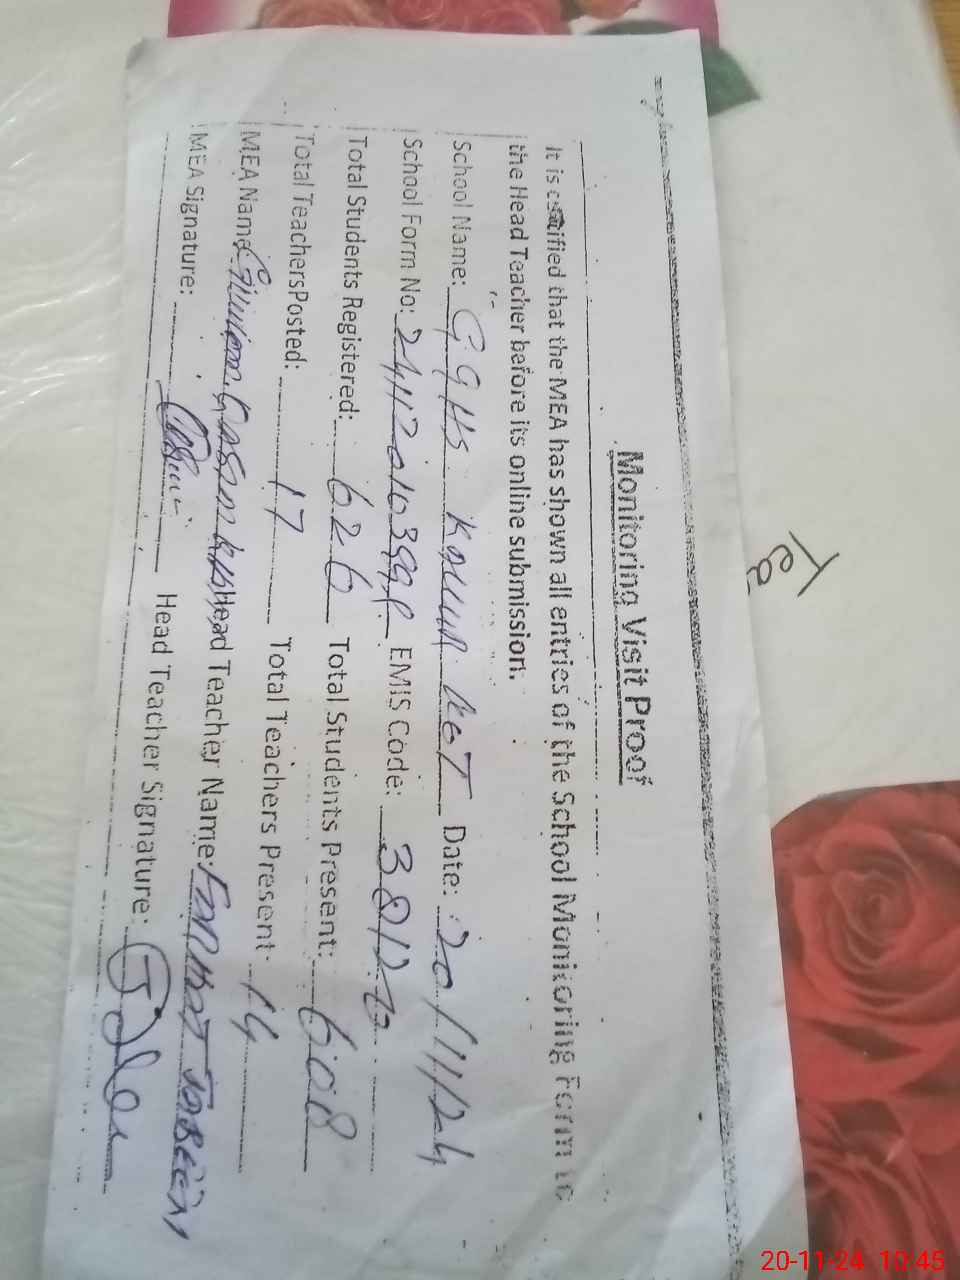 Monitoring Visit Proof
It is certified that the MEA has shown all entries of the School Monitoring Form to
the Head Teacher before its online submission.
School Name: GGHS Date: 20/11/24
School Form No: EMIS Code:
Total Students Registered: 626 Total Students Present: 608
Total TeachersPosted: 17 Total Teachers Present 14
MEA Name Head Teacher Name:
MEA Signature: Head Teacher Signature:
Tea
20-11-24 10:45